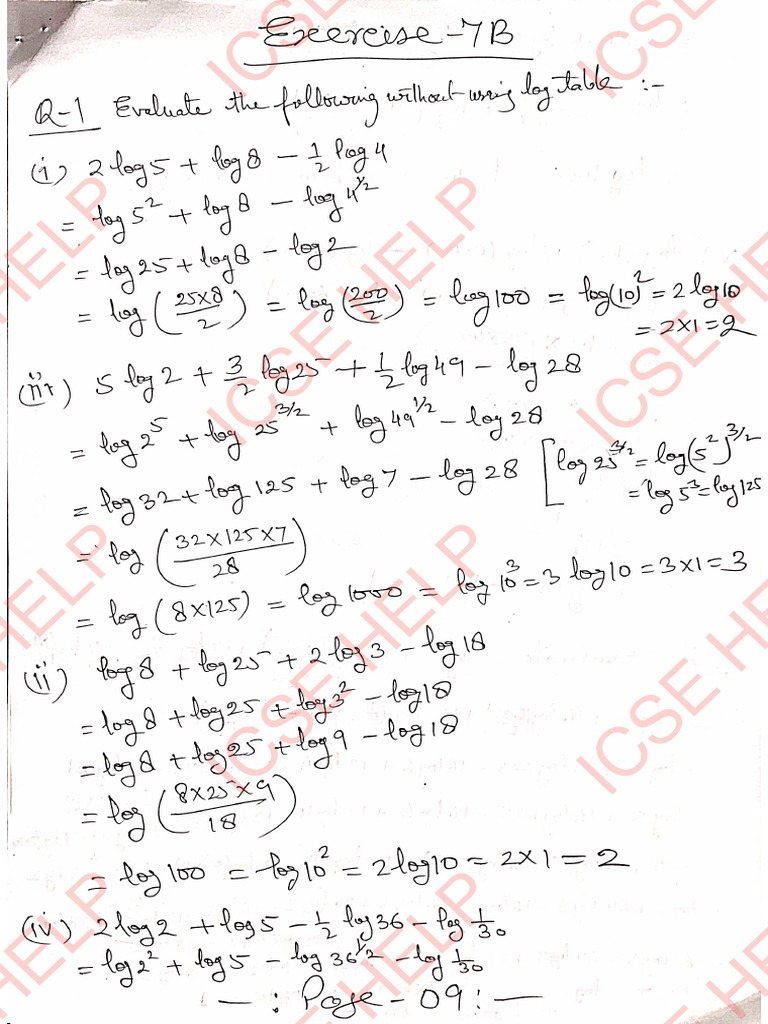 Exercise-7B
Q-1 Evaluate the following without using log table :-
(i) 2 log 5 + log 8 - 1/2 log 4
= log 5² + log 8 - log 4^1/2
= log 25 + log 8 - log 2
= log (25×8/2) = log (200/2) = log 100 = log(10)² = 2 log 10
= 2×1 = 2
(iii) 5 log 2 + 3/2 log 25 + 1/2 log 49 - log 28
= log 2⁵ + log 25^3/2 + log 49^1/2 - log 28
= log 32 + log 125 + log 7 - log 28 [ log 25^3/2 = log(5²)^3/2
= log 5³ = log 125
= log (32×125×7/28)
= log (8×125) = log 1000 = log 10³ = 3 log 10 = 3×1 = 3
(ii) log 8 + log 25 + 2 log 3 - log 18
= log 8 + log 25 + log 3² - log 18
= log 8 + log 25 + log 9 - log 18
= log (8×25×9/18)
= log 100 = log 10² = 2 log 10 = 2×1 = 2
(iv) 2 log 2 + log 5 - 1/2 log 36 - log 1/30
= log 2² + log 5 - log 36^1/2 - log 1/30
— : Page - 09 : —
ICSE HELP
ICSE HELP
ICSE HELP
ICSE HELP
ICSE HELP
ICSE HELP